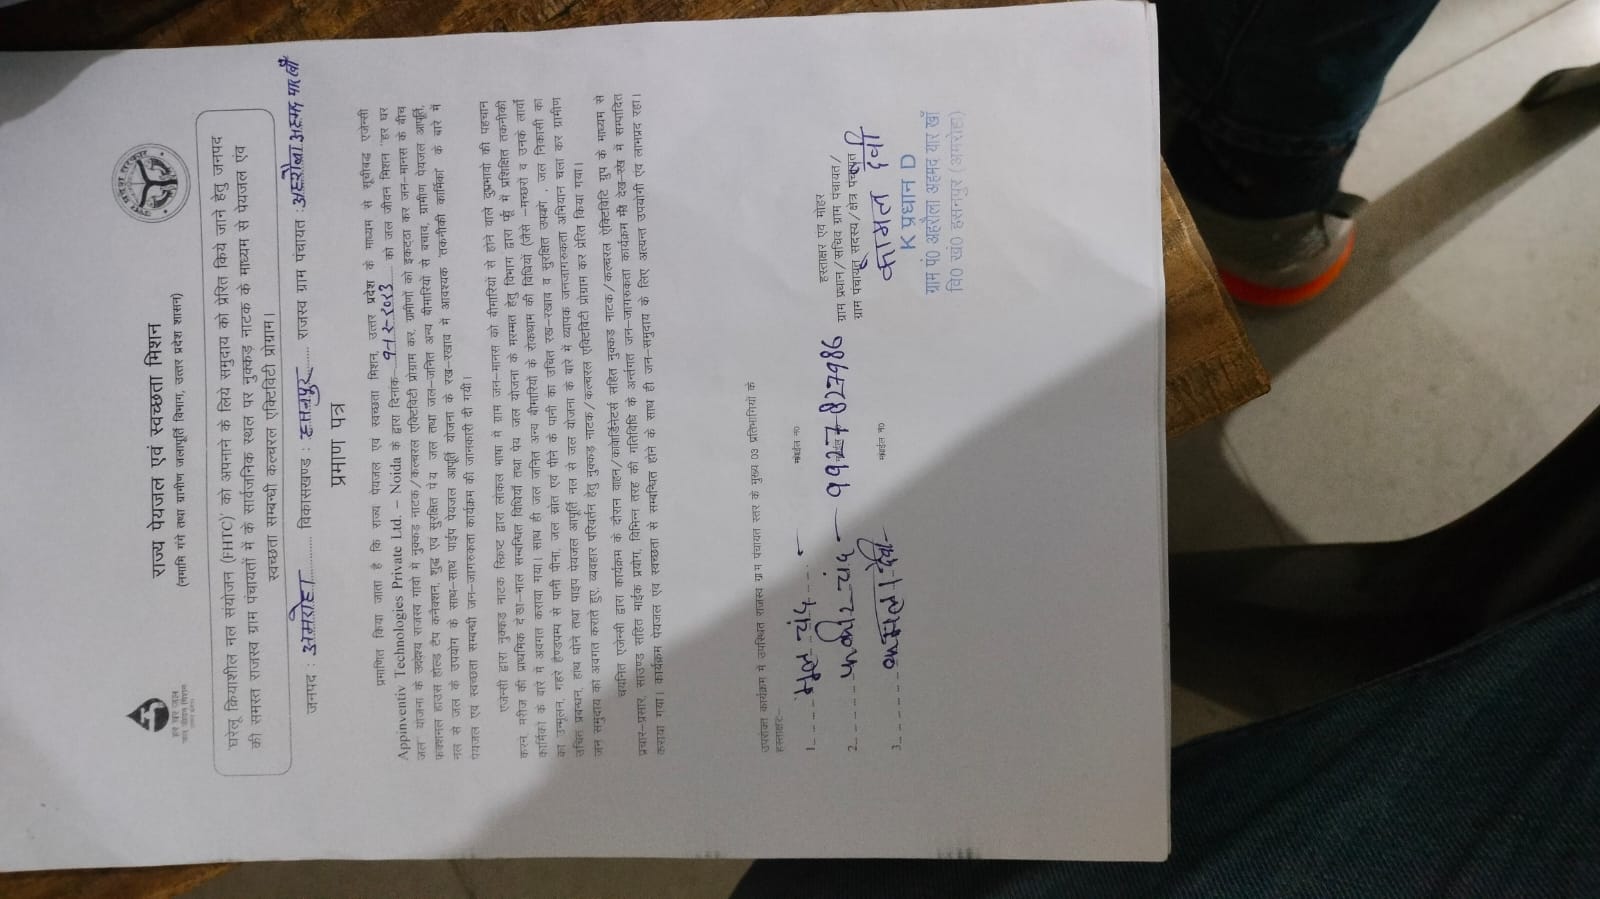 हर घर जल
जल जीवन मिशन
राज्य पेयजल एवं स्वच्छता मिशन
(नमामि गंगे तथा ग्रामीण जलापूर्ति विभाग, उत्तर प्रदेश शासन)
'घरेलू क्रियाशील नल संयोजन (FHTC)' को अपनाने के लिये समुदाय को प्रेरित किये जाने हेतु जनपद
की समस्त राजस्व ग्राम पंचायतों में के सार्वजनिक स्थल पर नुक्कड़ नाटक के माध्यम से पेयजल एंव
स्वच्छता सम्बन्धी कल्चरल एक्टिविटी प्रोग्राम।
जनपद : अमरोहा विकासखण्ड : हसनपुर राजस्व ग्राम पंचायत :
प्रमाण पत्र
प्रमाणित किया जाता है कि राज्य पेयजल एवं स्वच्छता मिशन, उत्तर प्रदेश के माध्यम से सूचीबद्ध एजेन्सी
Appinventiv Technologies Private Ltd. – Noida के द्वारा दिनांक को जल जीवन मिशन "हर घर
जल" योजना के उद्देश्य राजस्व गांवो में नुक्कड़ नाटक/कल्चरल एक्टिविटी प्रोग्राम कर, ग्रामीणों को इकट्ठा कर जन–मानस के बीच
फंक्शनल हाउस होल्ड टैप कनैक्शन, शुद्ध एवं सुरक्षित पेय जल तथा जल–जनित अन्य बीमारियों से बचाव, ग्रामीण पेयजल आपूर्ति,
नल से जल के उपयोग के साथ–साथ पाईप पेयजल आपूर्ति योजना के रख–रखाव में आवश्यक तकनीकी कार्मिकों के बारे में
पेयजल एंव स्वच्छता सम्बन्धी जन–जागरुकता कार्यक्रम की जानकारी दी गयी।
एजेन्सी द्वारा नुक्कड़ नाटक स्क्रिप्ट द्वारा लोकल भाषा में ग्राम जन–मानस को बीमारियों से होने वाले दुष्प्रभावों की पहचान
करने, मरीज की प्राथमिक देखा–भाल सम्बन्धित विधियों तथा पेय जल योजना के मरम्मत हेतु विभाग द्वारा में प्रशिक्षित तकनीकी
कार्मिकों के बारे में अवगत कराया गया। साथ ही जल जनित अन्य बीमारियों के रोकथाम की विधियों (जैसे –मच्छरों व उनके लार्वा
का उन्मूलन, गहरे हैण्डपम्प से पानी पीना, जल स्रोत एवं पीने के पानी का उचित रख–रखाव व सुरक्षित उपयोग, जल निकासी का
उचित प्रबन्धन, हाथ धोने तथा पाइप पेयजल आपूर्ति नल से जल योजना के बारे में व्यापक जनजागरुकता अभियान चला कर ग्रामीण
जन समुदाय को अवगत कराते हुए, व्यवहार परिवर्तन हेतु नुक्कड़ नाटक/कल्चरल एक्टिविटी प्रोग्राम कर प्रेरित किया गया।
चयनित एजेन्सी द्वारा कार्यक्रम के दौरान वाहन/कोर्डिनेटर्स सहित नुक्कड़ नाटक/कल्चरल ऐक्टिविटि ग्रुप के माध्यम से
प्रचार–प्रसार, साउण्ड सहित माईक प्रयोग, विभिन्न तरह की गतिविधि के अर्न्तगत जन–जागरुकता कार्यक्रम मेरे देख–रेख में सम्पादित
कराया गया। कार्यक्रम पेयजल एवं स्वच्छता से सम्बन्धित होने के साथ ही जन–समुदाय के लिए अत्यन्त उपयोगी एवं लाभप्रद रहा।
उपरोक्त कार्यक्रम में उपस्थित राजस्व ग्राम पंचायत स्तर के मुख्य 03 प्रतिभागियों के
हस्ताक्षर:–
1. चंद मोबाईल न०
2. फकीर चंद 9927827986
3. कमला देवी मोबाईल न०
हस्ताक्षर एवं मोहर
ग्राम प्रधान/सचिव ग्राम पंचायत/
ग्राम पंचायत सदस्य/क्षेत्र पंचायत
प्रधान
ग्राम पं० अहरौला अहमद यार खाँ
वि० खं० हसनपुर (अमरोहा)